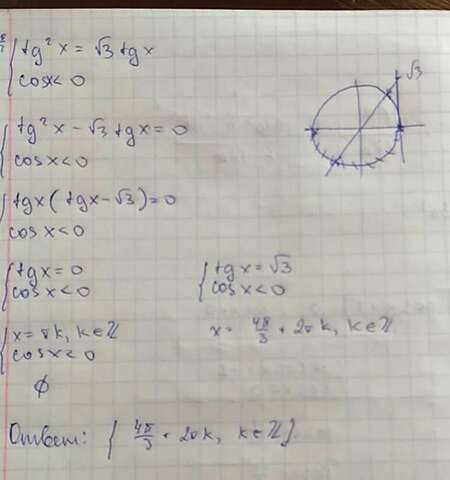 tg²x = √3 tgx
cosx < 0
√3
tg²x - √3 tgx = 0
cosx < 0
tgx (tgx - √3) = 0
cosx < 0
tgx = 0
cosx < 0
tgx = √3
cosx < 0
x = πk, k∈ℤ
cosx < 0
x = 4π/3 + 2πk, k∈ℤ
∅
Ответ: { 4π/3 + 2πk, k∈ℤ }